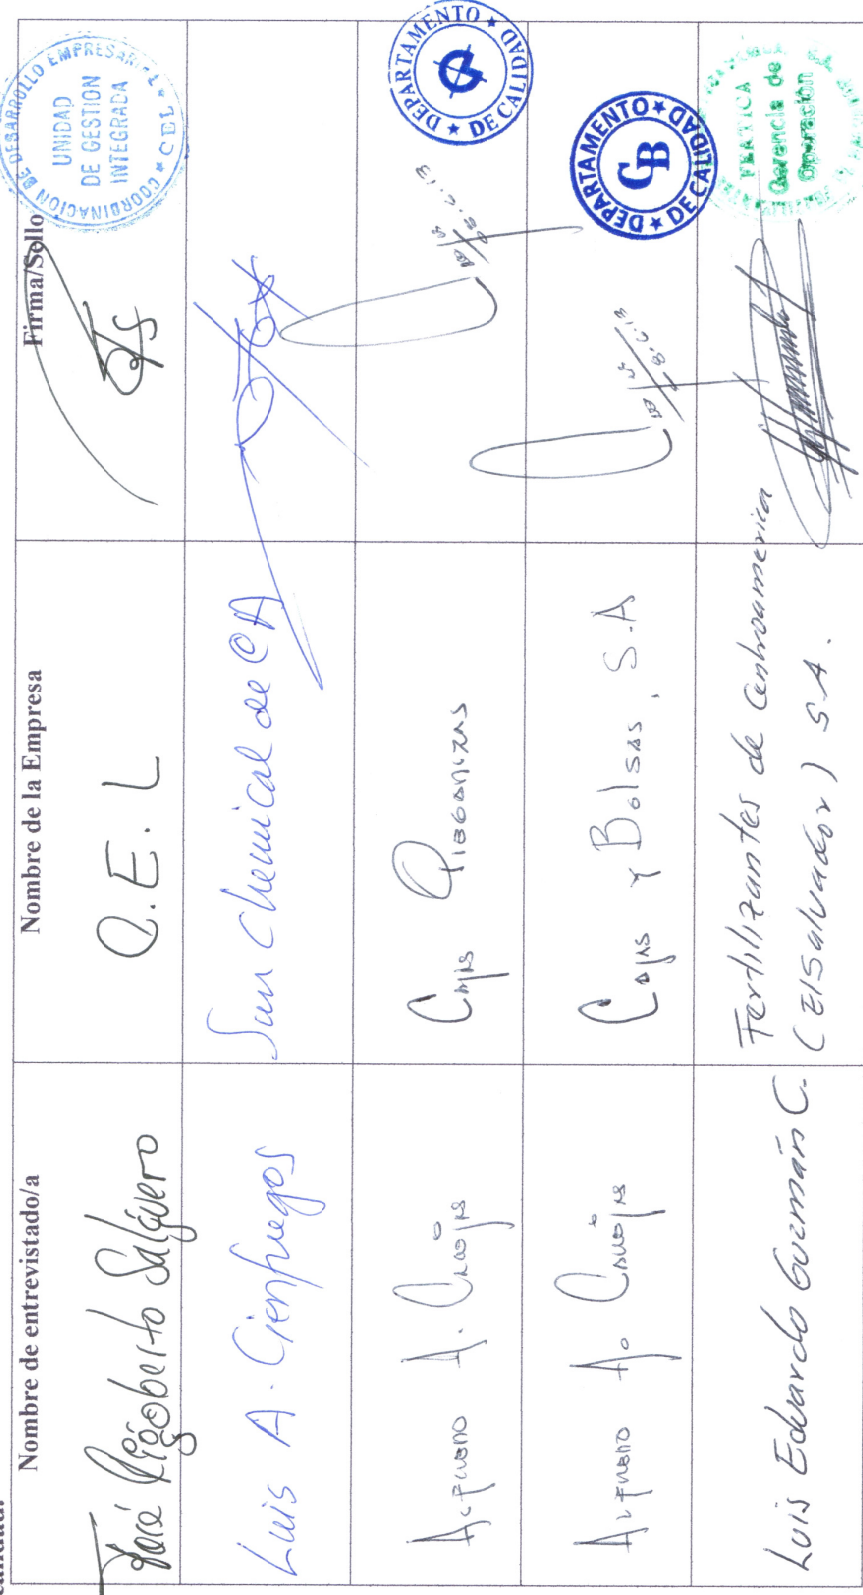 Nombre de entrevistado/a Nombre de la Empresa Firma/Sello
José Rigoberto Salguero C.E.L
COORDINACION DE DESARROLLO EMPRESARIAL ★ CEL ★
UNIDAD
DE GESTION
INTEGRADA
Luis A. Cienfuegos Sun Chemical de CA
Alfredo A. Cajas
DEPARTAMENTO ★ DE CALIDAD ★
Alfredo A. Cajas y Bolsas, S.A
DEPARTAMENTO ★ DE CALIDAD ★
CB
Luis Eduardo Guzmán C. Fertilizantes de Centroamerica
(ElSalvador) S.A.
Gerencia de
Operación